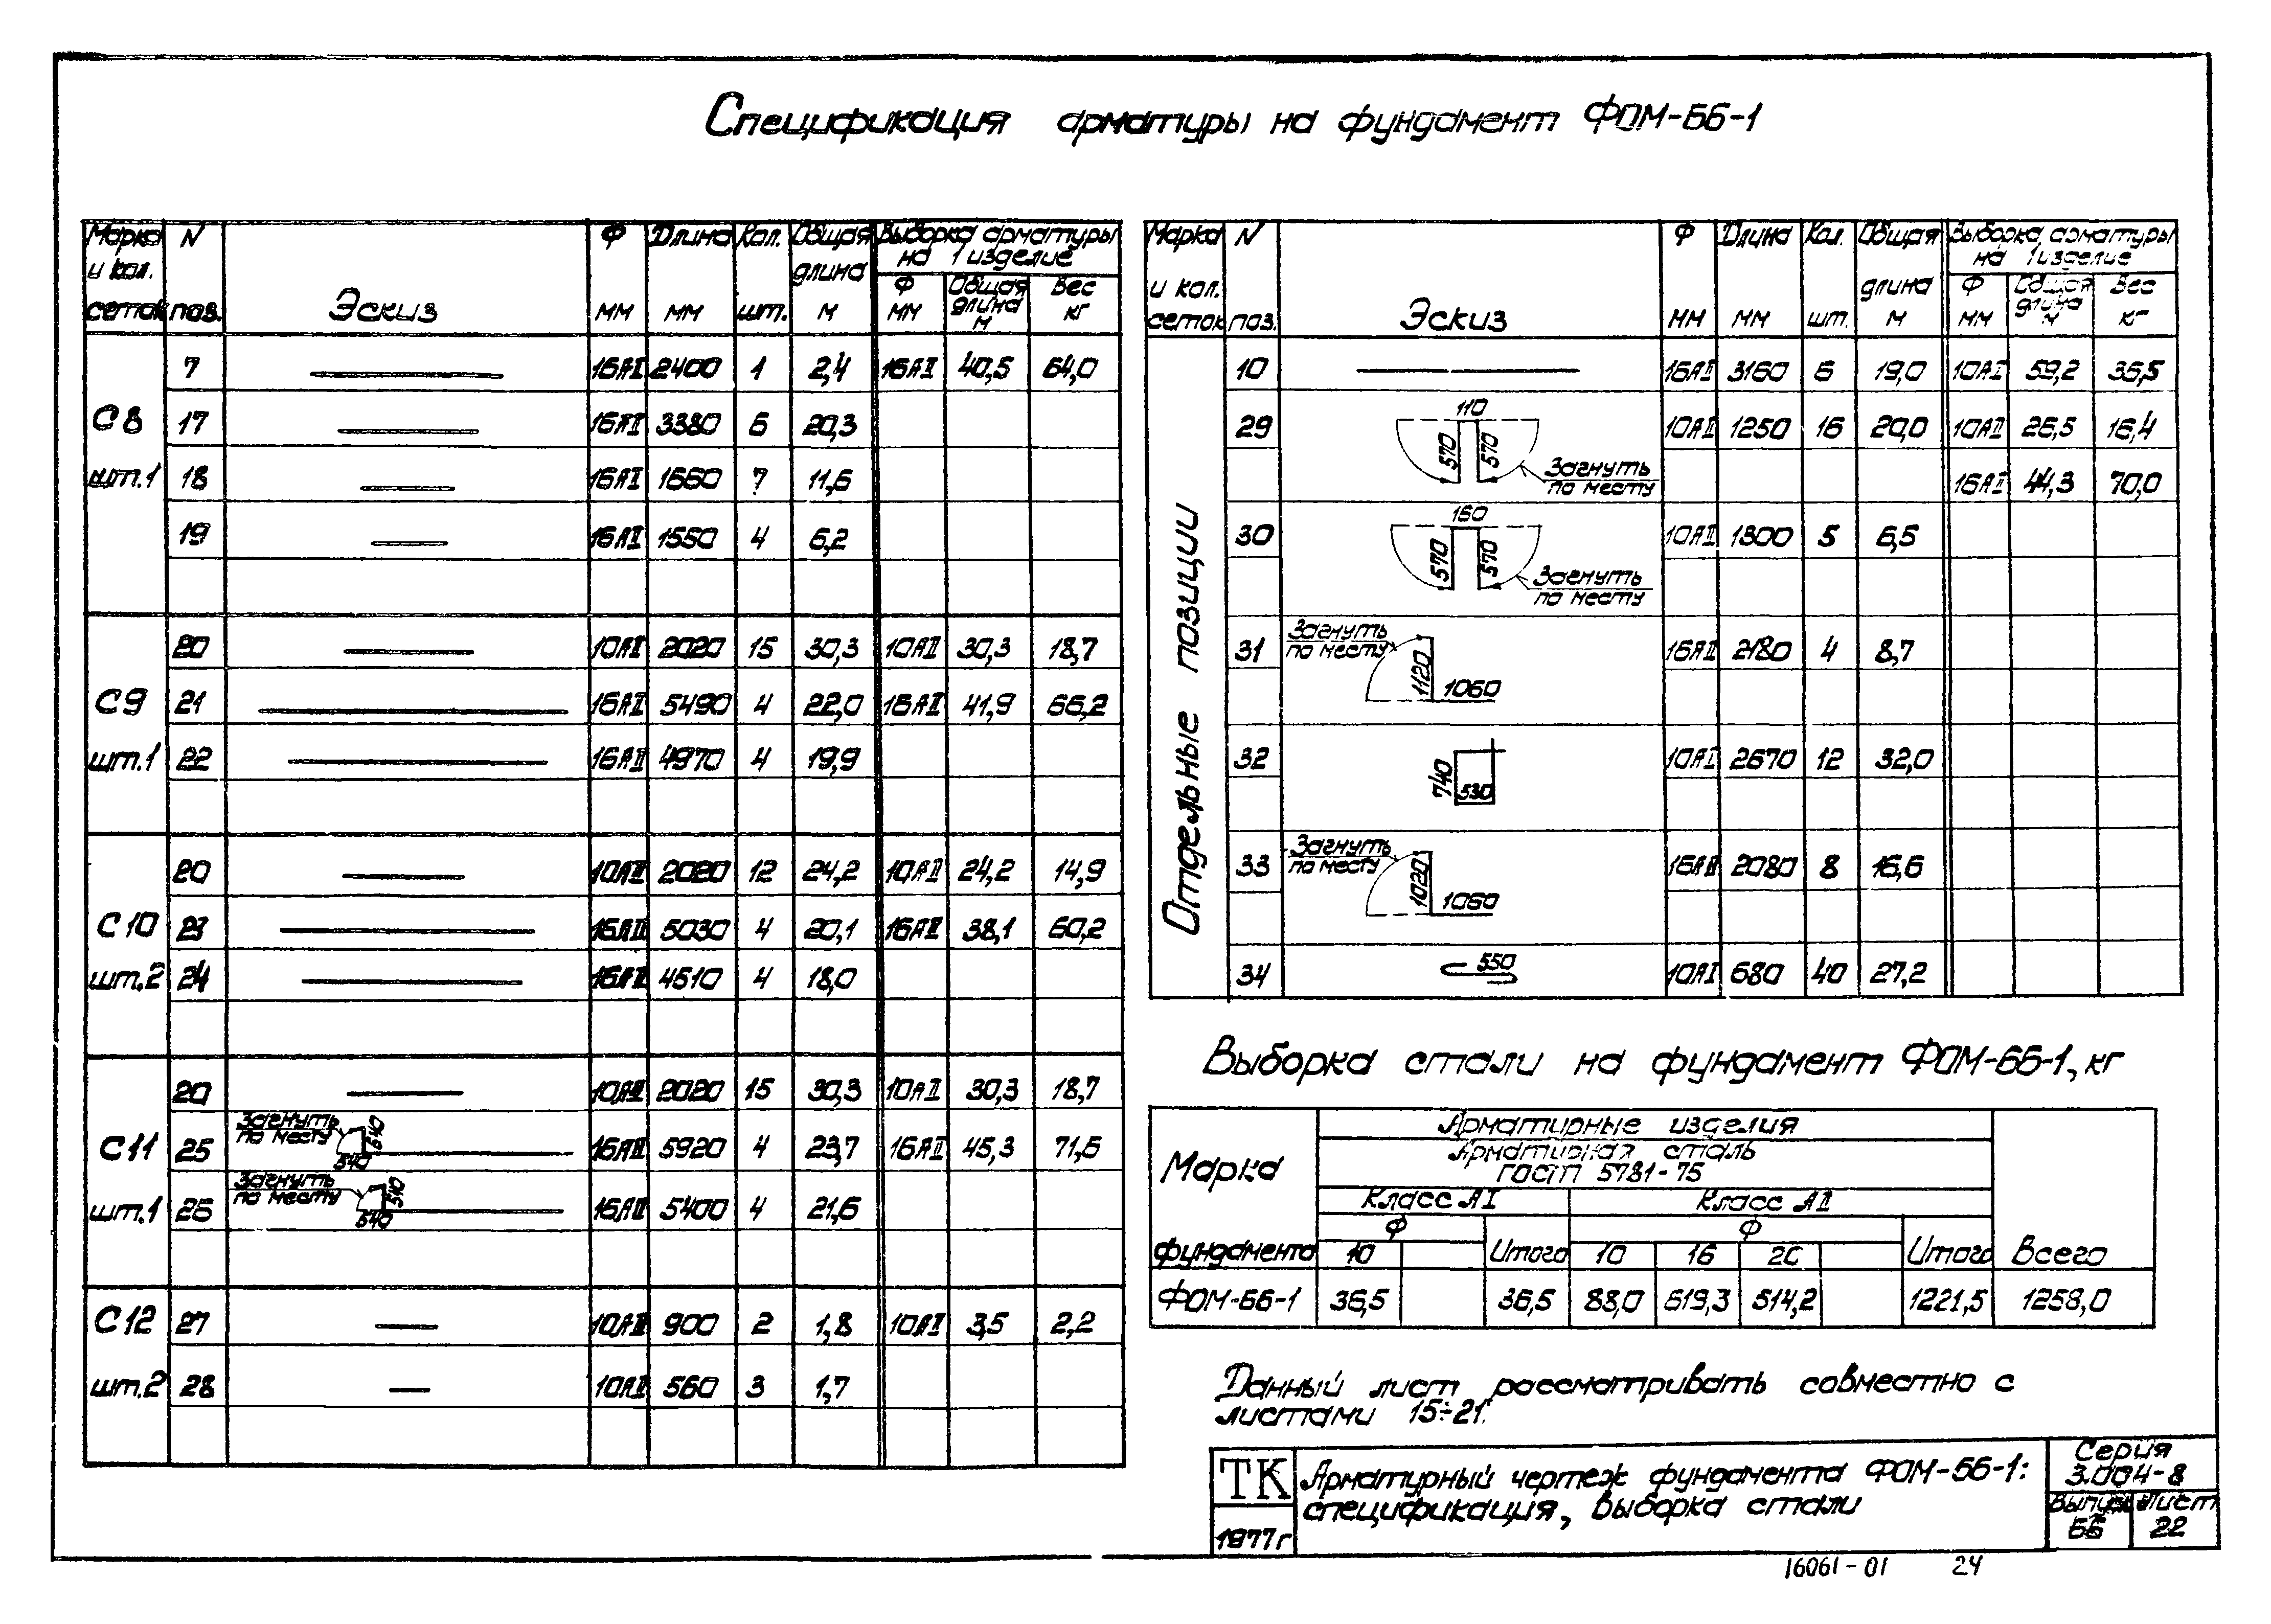 Спецификация арматуры на фундамент ФОМ-66-1
Марка и кол. сеток N поз. Эскиз Ф мм Длина мм Кол. шт. Общая длина м Выборка арматуры на 1 изделие
Ф мм Общая длина м Вес кг
С8 шт.1
7 16АII 2400 1 2,4 16АII 40,5 64,0
17 16АII 3380 6 20,3
18 16АII 1660 7 11,6
19 16АII 1550 4 6,2
С9 шт.1
20 10АII 2020 15 30,3 10АII 30,3 18,7
21 16АII 5490 4 22,0 16АII 41,9 66,2
22 16АII 4970 4 19,9
С10 шт.2
20 10АII 2020 12 24,2 10АII 24,2 14,9
23 16АII 5030 4 20,1 16АII 38,1 60,2
24 16АII 4510 4 18,0
С11 шт.1
20 10АII 2020 15 30,3 10АII 30,3 18,7
25 Загнуть по месту 640 540 16АII 5920 4 23,7 16АII 45,3 71,6
26 Загнуть по месту 510 540 16АII 5400 4 21,6
С12 шт.2
27 10АII 900 2 1,8 10АII 3,5 2,2
28 10АII 560 3 1,7
Марка и кол. сеток N поз. Эскиз Ф мм Длина мм Кол. шт. Общая длина м Выборка арматуры на 1 изделие
Ф мм Общая длина м Вес кг
Отдельные позиции
10 16АII 3160 6 19,0 10АI 59,2 36,5
29 110 570 570 Загнуть по месту 10АII 1250 16 20,0 10АII 26,5 16,4
16АII 44,3 70,0
30 160 570 570 Загнуть по месту 10АII 1300 5 6,5
31 Загнуть по месту 1120 1060 16АII 2180 4 8,7
32 740 530 10АI 2670 12 32,0
33 Загнуть по месту 1020 1060 16АII 2080 8 16,6
34 550 10АI 680 40 27,2
Выборка стали на фундамент ФОМ-66-1, кг
Марка фундамента
Арматурные изделия
Арматурная сталь
ГОСТ 5781-75
Класс АI Класс АII
Ф Ф
10 Итого 10 16 20 Итого Всего
ФОМ-66-1 36,5 36,5 88,0 619,3 514,2 1221,5 1258,0
Данный лист рассматривать совместно с
листами 15÷21.
ТК
1977г
Арматурный чертеж фундамента ФОМ-66-1:
спецификация, выборка стали
Серия
3.004-8
Выпуск Лист
66 22
16061-01 24